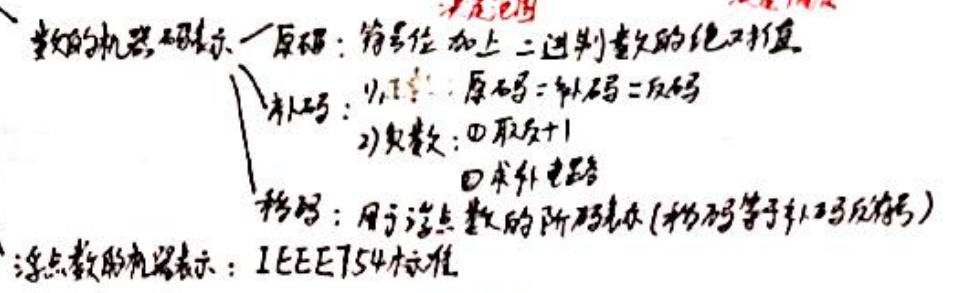 决定范围
数的机器码表示 原码：符号位加上二进制数的绝对值
补码：1)正数：原码=补码=反码
2)负数：①取反+1
②求补电路
移码：用于浮点数的阶码表示(移码等于补码反符号)
浮点数的机器表示：IEEE754标准